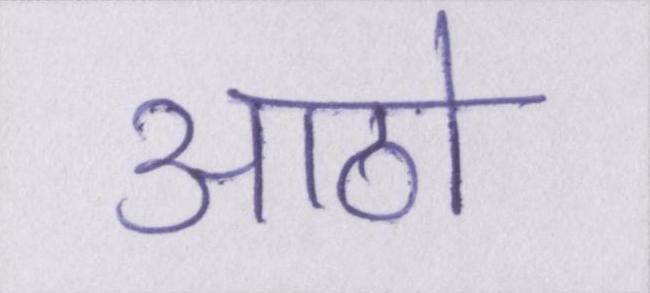 आठो